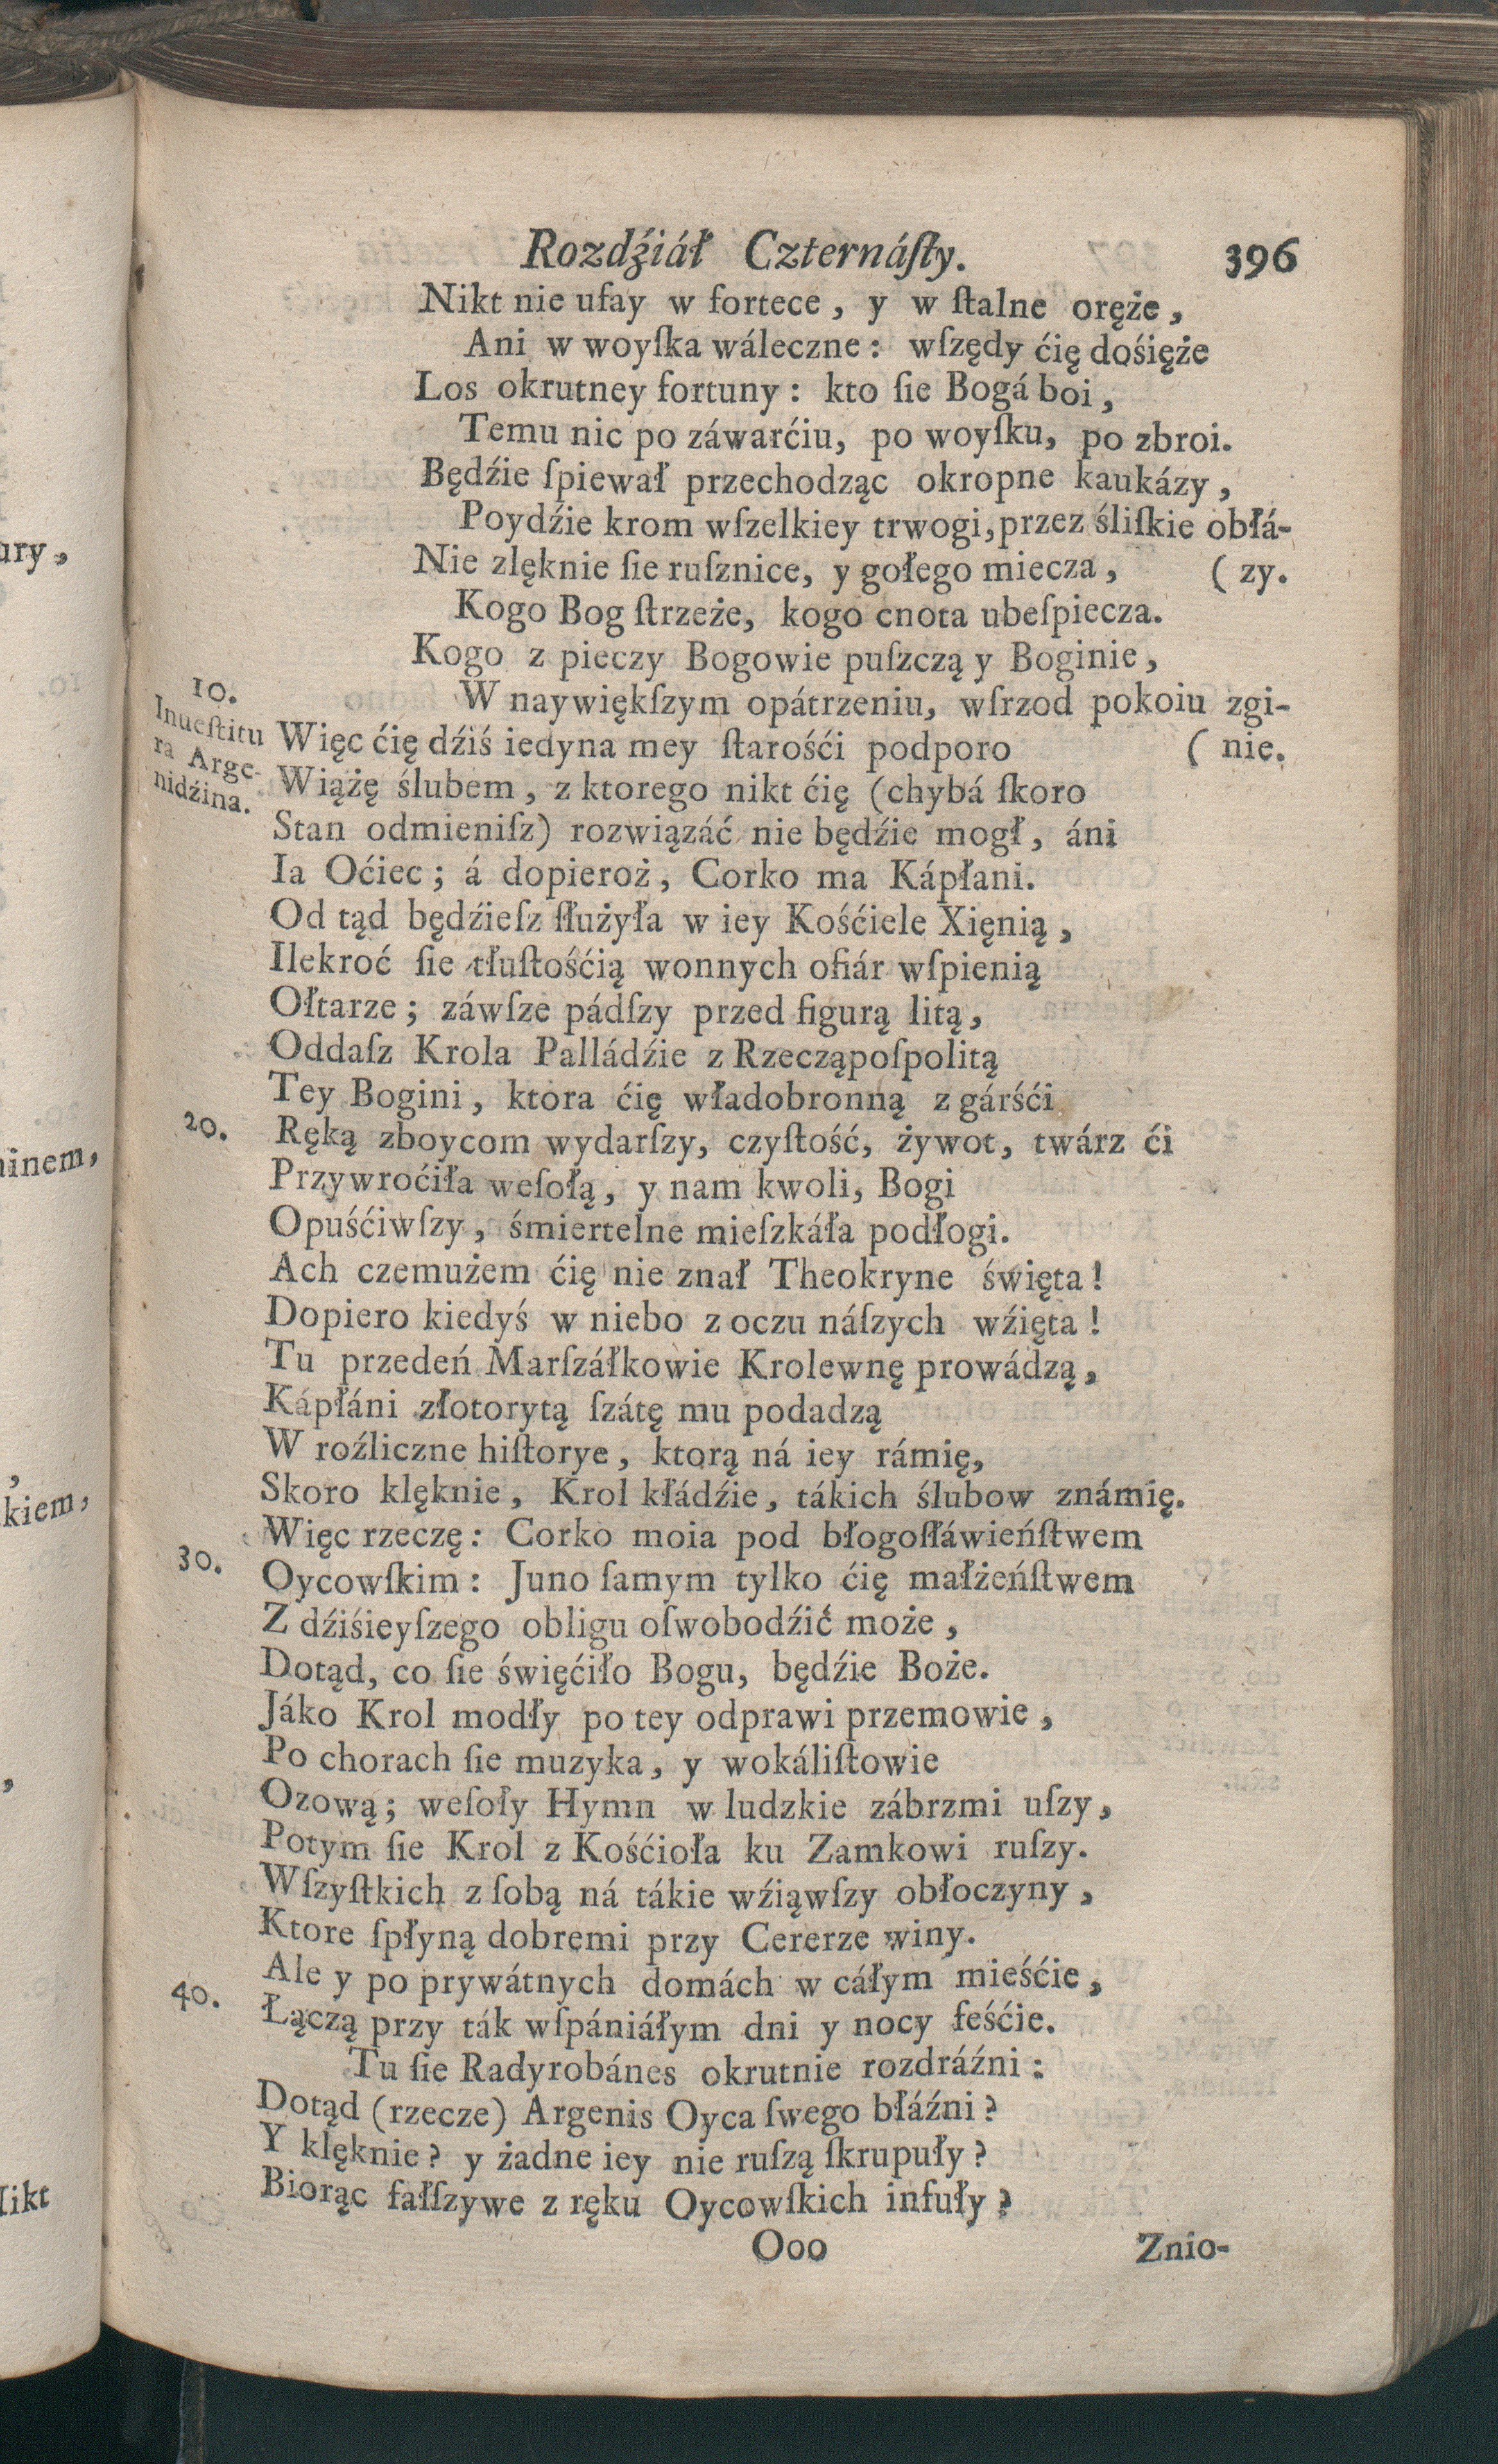 ury,
ninem,
,
kiem,
,
Nikt
Rozdźiáł Czternáſty. 396
Nikt nie ufay w fortece, y w ſtalne oręże,
Ani w woyſka wáleczne: wſzędy ćię dośięże
Los okrutney fortuny: kto ſie Bogá boi,
Temu nic po záwarćiu, po woyſku, po zbroi.
Będźie ſpiewał przechodząc okropne kaukázy,
Poydźie krom wſzelkiey trwogi, przez śliſkie obłá-
Nie zlęknie ſie ruſznice, y gołego miecza, ( zy.
Kogo Bog ſtrzeże, kogo cnota ubeſpiecza.
Kogo z pieczy Bogowie puſzczą y Boginie,
10. W naywiękſzym opátrzeniu, wſrzod pokoiu zgi-
Inueſtitu
ra Arge-
nidźina.
Więc ćię dźiś iedyna mey ſtarośći podporo ( nie.
Wiążę ślubem, z ktorego nikt ćię (chybá ſkoro
Stan odmieniſz) rozwiązáć nie będźie mogł, áni
Ia Oćiec; á dopieroż, Corko ma Kápłani.
Od tąd będźieſz ſłużyła w iey Kośćiele Xięnią,
Ilekroć ſie tłuſtośćią wonnych ofiár wſpienią
Ołtarze; záwſze pádſzy przed figurą litą,
Oddaſz Krola Palládźie z Rzecząpoſpolitą
Tey Bogini, ktora ćię władobronną z gárśći
20. Ręką zboycom wydarſzy, czyſtość, żywot, twárz ći
Przywroćiła weſołą, y nam kwoli, Bogi
Opuśćiwſzy, śmiertelne mieſzkáła podłogi.
Ach czemużem ćię nie znał Theokryne święta!
Dopiero kiedyś w niebo z oczu náſzych wźięta!
Tu przedeń Marſzáłkowie Krolewnę prowádzą,
Kápłáni złotorytą ſzátę mu podadzą
W roźliczne hiſtorye, ktorą ná iey rámię,
Skoro klęknie, Krol kłádźie, tákich ślubow známię.
Więc rzeczę: Corko moia pod błogoſłáwieńſtwem
30. Oycowſkim: Juno ſamym tylko ćię małżeńſtwem
Z dźiśieyſzego obligu oſwobodźić może,
Dotąd, co ſie święćiło Bogu, będźie Boże.
Jáko Krol modły po tey odprawi przemowie,
Po chorach ſie muzyka, y wokáliſtowie
Ozową; weſoły Hymn w ludzkie zábrzmi uſzy,
Potym ſie Krol z Kośćioła ku Zamkowi ruſzy.
Wſzyſtkich z ſobą ná tákie wźiąwſzy obłoczyny,
Ktore ſpłyną dobremi przy Cererze winy.
Ale y po prywátnych domách w cáłym mieśćie,
40. Łączą przy ták wſpániáłym dni y nocy feśćie.
Tu ſie Radyrobánes okrutnie rozdráźni:
Dotąd (rzecze) Argenis Oyca ſwego błáźni?
Y klęknie? y żadne iey nie ruſzą ſkrupuły?
Biorąc fałſzywe z ręku Oycowſkich infuły?
Ooo Znio-